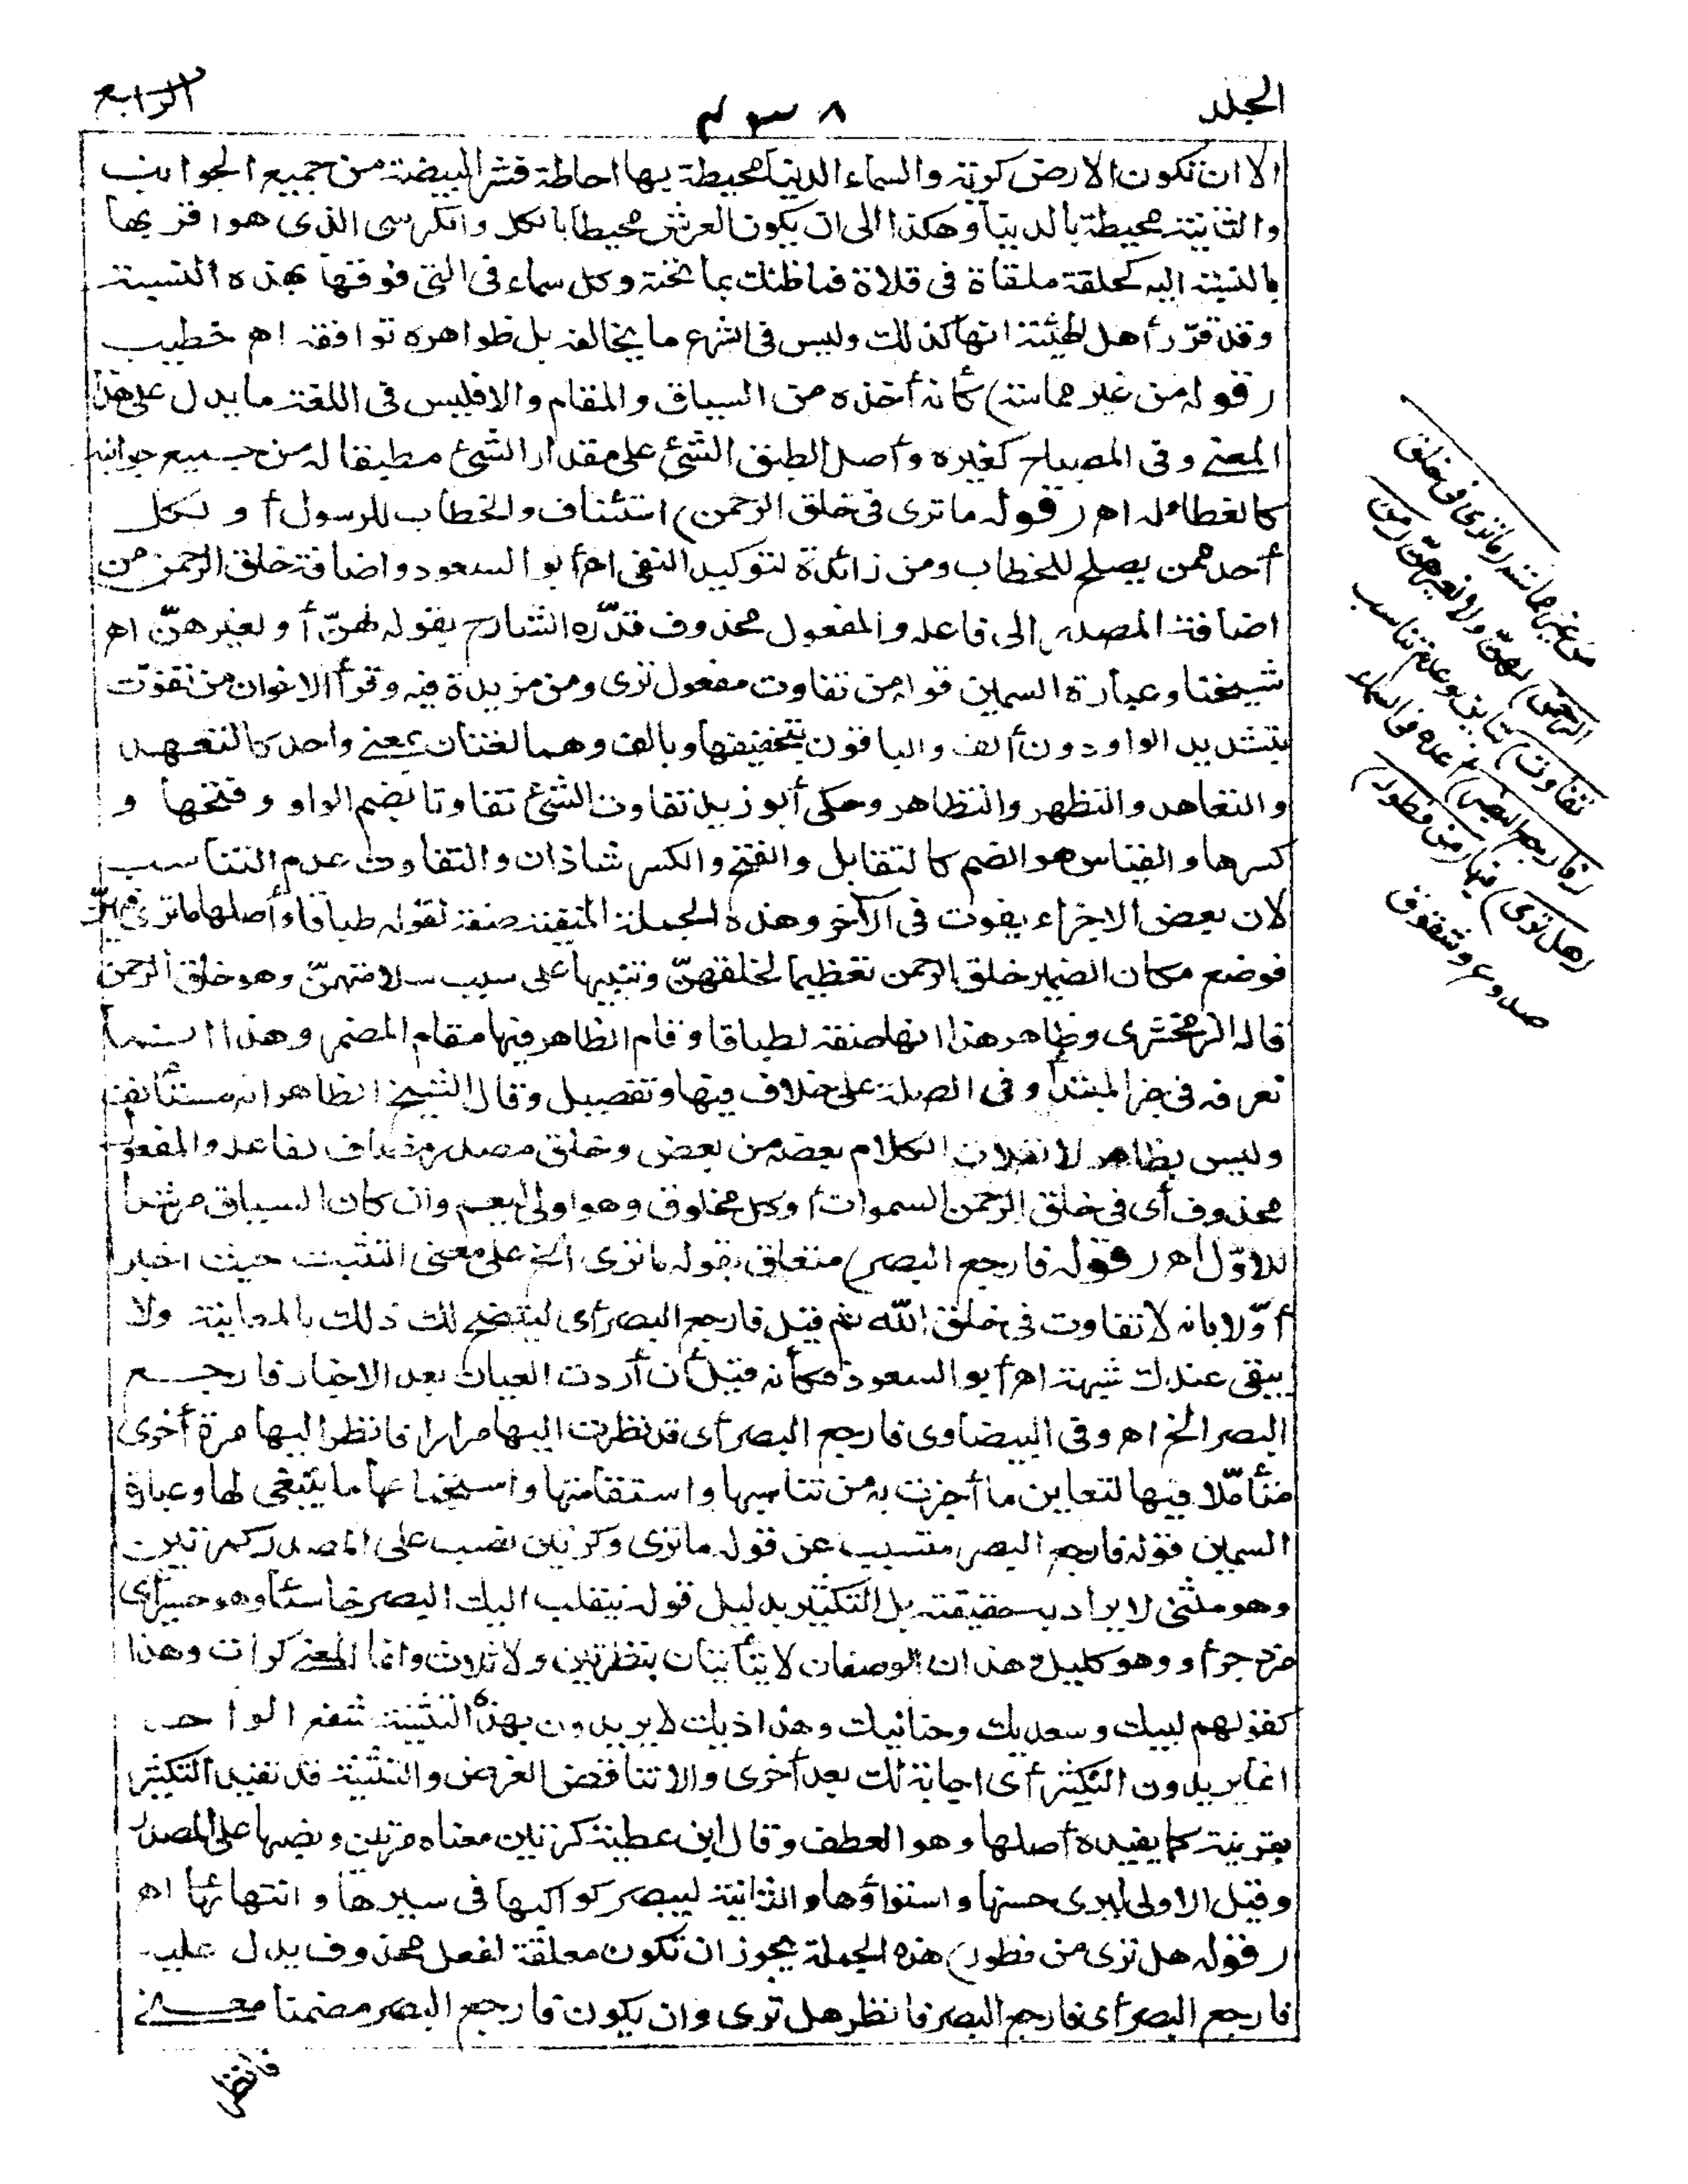 الجلد
٤٣٨
الرابع
الا ان تكون الارض كرية والسماء الدنيا محيطة بها احاطة قشر البيضة من جميع الجوانب
والثانية محيطة بالدنيا وهكذا الى ان يكون العرش محيطا بالكل والكرسى الذى هو اقربها
بالنسبة اليه كحلقة ملقاة فى فلاة فما ظنك بما تحته وكل سماء فى التى فوقها بهذه النسبة
وقد قرّر أهل الهيئة انها كذلك وليس فى الشرع ما يخالفه بل ظواهره توافقه اهـ خطيب
(قوله من غير مماسة) كأنه أخذه من السياق والمقام والا فليس فى اللغة ما يدل على هذا
المعنى وفى المصباح كغيره وأصل الطبق الشئ على مقدار الشئ مطبقا له من جميع جوانبه
كالغطاء له اهـ (قوله ما ترى فى خلق الرحمن) استئناف والخطاب للرسول أو لكل
أحد ممن يصلح للخطاب ومن زائدة لتوكيد النفى اهـ أبو السعود واضافة خلق الرحمن من
اضافة المصدر الى فاعله والمفعول محذوف قدّره الشارح بقوله لهنّ أو لغيرهنّ اهـ
شيخنا وعبارة السمين قوله من تفاوت مفعول ترى ومن مزيدة فيه وقرأ الاخوان من تفوّت
بتشديد الواو دون ألف والباقون بتخفيفها وبالف وهما لغتان بمعنى واحد كالتعهد
والتعاهد والتظهر والتظاهر وحكى أبو زيد تفاوت الشئ تفاوتا بضم الواو وفتحها و
كسرها والقياس هو الضم كالتقابل والفتح والكسر شاذان والتفاوت عدم التناسب
لان بعض الاجزاء يفوت فى الآخر وهذه الجملة المنفية صفة لقوله طباقا وأصلها ما ترى فيهنّ
فوضع مكان الضمير خلق الرحمن تعظيما لخلقهنّ وتنبيها على سبب سلامتهنّ وهو خلق الرحمن
قاله الزمخشرى وظاهر هذا انها صفة لطباقا وقام الظاهر فيها مقام المضمر وهذا انما
تعرفه فى خبر المبتدأ وفى الصلة على خلاف فيها وتفصيل وقال الشيخ الظاهر انه مستأنف
وليس بظاهر لانفلات الكلام بعضه من بعض وخلق مصدر مضاف لفاعله والمفعول
محذوف أى فى خلق الرحمن السموات أو كل مخلوق وهو اولى ليعم وان كان السياق مرشدا
للاوّل اهـ (قوله فارجع البصر) متعلق بقوله ما ترى الخ على معنى التثبت حيث اخبر
أوّلا بانه لا تفاوت فى خلق الله ثم قيل فارجع البصر أى ليتضح لك ذلك بالمعاينة ولا
يبقى عندك شبهة اهـ أبو السعود فكأنه قيل ان أردت العيان بعد الاخبار فارجع
البصر الخ اهـ وفى البيضاوى فارجع البصر أى قد نظرت اليها مرارا فانظر اليها مرة أخرى
متأمّلا فيها لتعاين ما أخبرت به من تناسبها واستقامتها واستجماعها ما ينبغى لها وعبارة
السمين قوله فارجع البصر متسبب عن قوله ما ترى وكرتين نصب على المصدر كمرتين
وهو مثنى لا يراد به حقيقته بل التكثير بدليل قوله ينقلب اليك البصر خاسئا وهو حسير أى
مزدجرا وهو كليل وهذان الوصفان لا يتأتيان بنظرتين ولا ثلاث وانما المعنى كرات وهذا
كقولهم لبيك وسعديك وحنانيك وهذاذيك لا يريدون بهذه التثنية شفع الواحد
انما يريدون التكثير أى اجابة لك بعد أخرى والا تناقض الغرض والتثنية قد تفيد التكثير
بقرينة كما يفيده أصلها وهو العطف وقال ابن عطية كرتين معناه مرتين ونصبها على المصدر
وقيل الاولى ليرى حسنها واستواؤها والثانية ليبصر كواكبها فى سيرها وانتهائها اهـ
(قوله هل ترى من فطور) هذه الجملة يجوز ان تكون معلقة لفعل محذوف يدل عليه
فارجع البصر أى فارجع البصر فانظر هل ترى وان يكون فارجع البصر مضمنا معنى
فانظر
من غير مماسة (ما ترى فى خلق
الرحمن) لهنّ ولا لغيرهنّ (من
تفاوت) تباين وعدم تناسب
(فارجع البصر) أعده فى السماء
(هل ترى) فيها (من فطور)
صدوع وشقوق